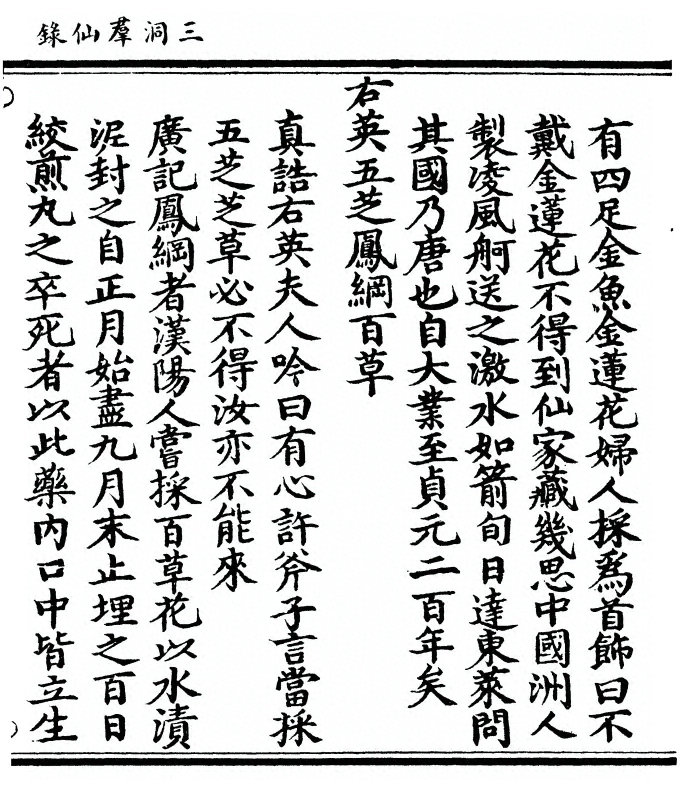 三洞羣仙錄
有四足金魚金蓮花婦人採爲首飾曰不
戴金蓮花不得到仙家藏幾思中國洲人
製凌風舸送之激水如箭旬日達東萊問
其國乃唐也自大業至貞元二百年矣
右英五芝鳳綱百草
真誥右英夫人吟曰有心許斧子言當採
五芝芝草必不得汝亦不能來
廣記鳳綱者漢陽人嘗採百草花以水漬
泥封之自正月始盡九月末止埋之百日
絞煎九之卒死者以此藥內口中皆立生